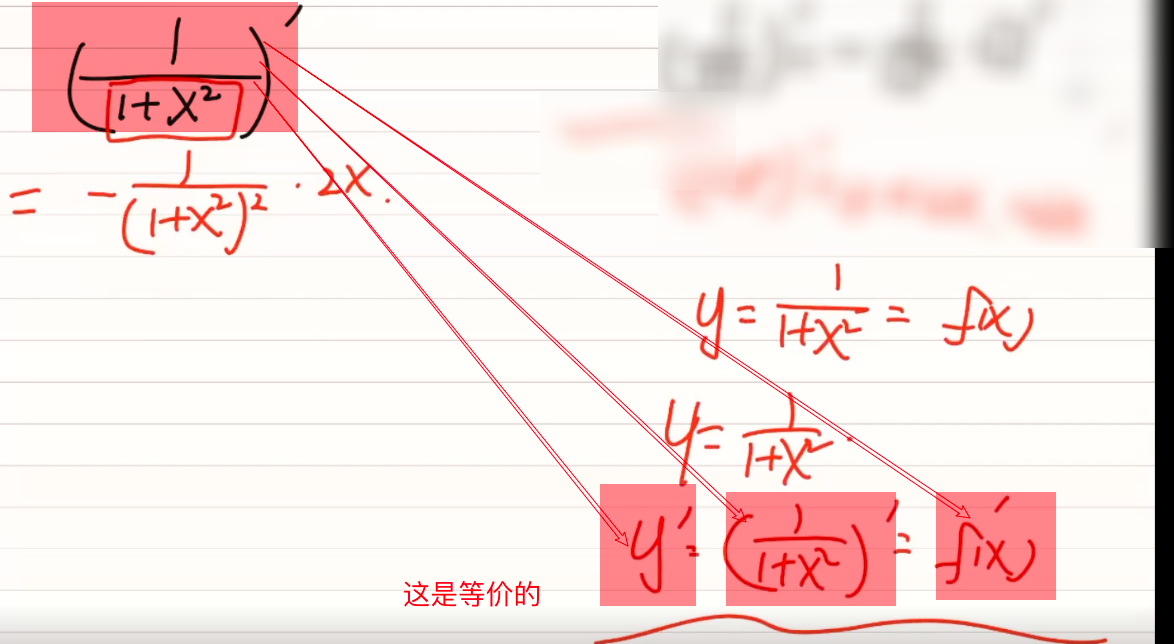 (1/(1+x²))′
= - 1/(1+x²)² · 2x.
y = 1/(1+x²) = f(x)
y = 1/(1+x²).
y′ = (1/(1+x²))′ = f′(x)
这是等价的